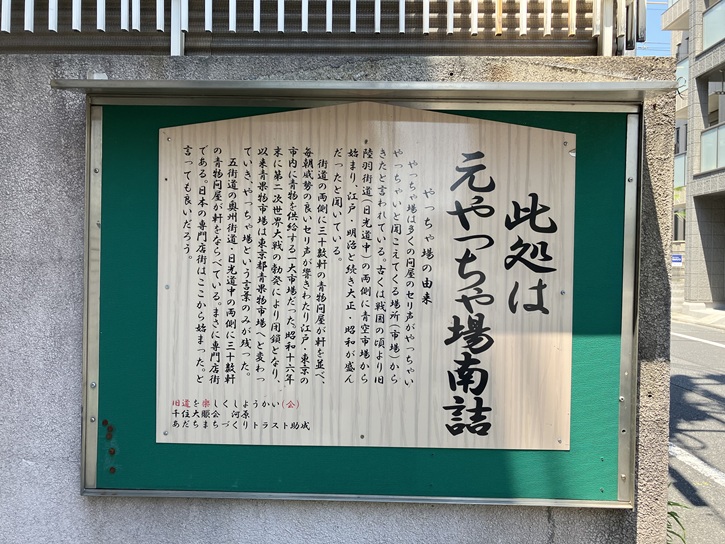 此処は
元やっちゃ場南詰
やっちゃ場の由来
やっちゃ場は多くの問屋のセリ声がやっちゃい
やっちゃいと聞こえてくる場所(市場)から
きたと言われている。古くは戦国の頃より旧
陸羽街道(日光道中)の両側に青空市場から
始まり、江戸・明治と続き大正・昭和が盛ん
だったと聞いている。
街道の両側に三十数軒の青物問屋が軒を並べ、
毎朝威勢の良いセリ声が響きわたり江戸・東京の
市内に青物を供給する一大市場だった。昭和十六年
末に第二次世界大戦の勃発により閉鎖となり、
以来青果物市場は東京都青果物市場へと変わっ
ていき、やっちゃ場という言葉のみが残った。
五街道の奥州街道・日光道中の両側に三十数軒
の青物問屋が軒をならべている。まさに専門店街
である。日本の専門店街はここから始まった。と
言っても良いだろう。
旧道を楽しくしようかい(会)
千住大賑会河原
あだちまちづくりトラスト助成